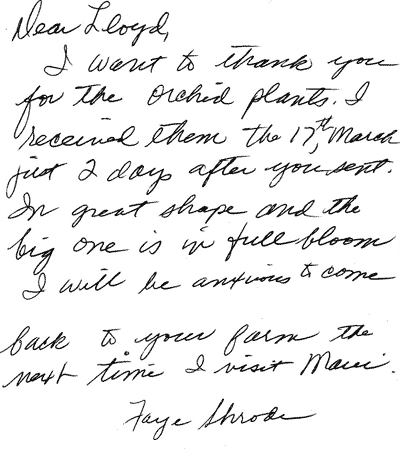 Dear Lloyd,
I want to thank you
for the orchid plants. I
received them the 17th, March
just 2 days after you sent.
In great shape and the
big one is in full bloom
I will be anxious to come
back to your farm the
next time I visit Maui.
Faye Shrode